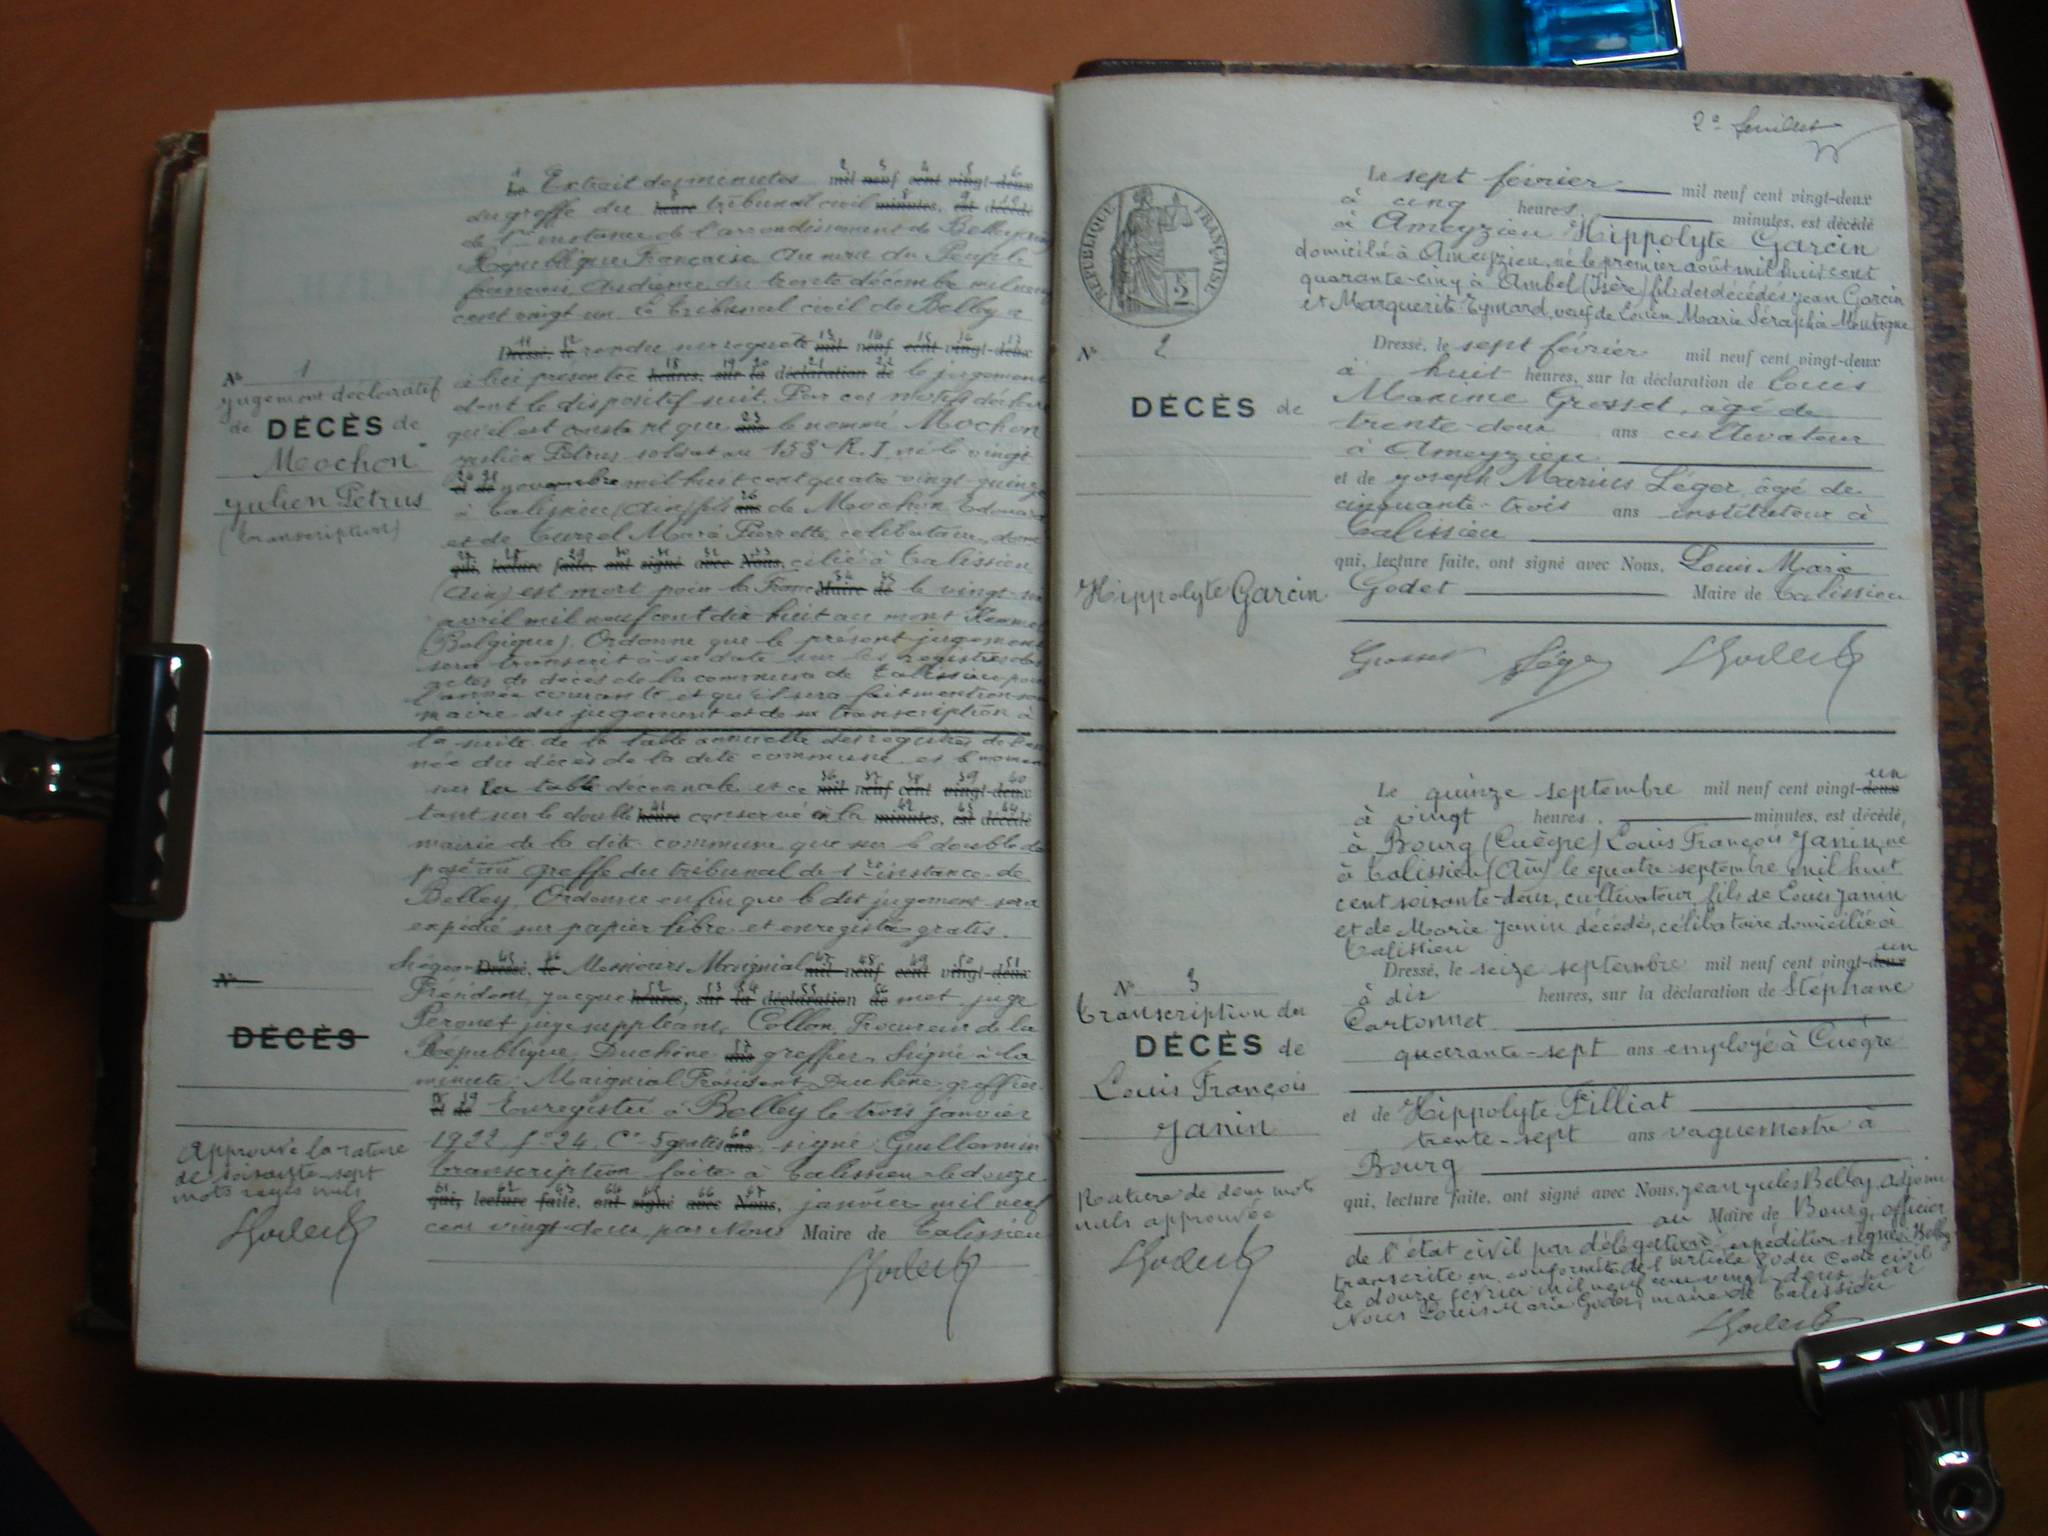 N° 1
Jugement déclaratif
de DÉCÈS de
Mochon
Julien Pétrus
(transcription)
N°
DÉCÈS
Approuvé la rature
de soixante-sept
mots rayés nuls
Le Extrait des minutes mil neuf cent vingt-deux
du greffe du heure tribunal civil minutes, est décédé
de 1re instance de l'arrondissement de Belley
République Française. Au nom du Peuple
français, Audience du trente décembre mil neuf
cent vingt un. Le Tribunal civil de Belley a
Dressé, le rendu sur requête mil neuf cent vingt-deux
à lui présentée heures, sur la déclaration de le jugement
dont le dispositif suit. Par ces motifs déclare
qu'il est constant que ans le nommé Mochon
Julien Pétrus soldat au 153e R.I. né le vingt
et de novembre mil huit cent quatre-vingt-quinze
à Talissieu (Ain) fils ans de Mochon Edouard
et de Turrel Marie Pierrette, célibataire, domi
qui, lecture faite, ont signé avec Nous, cilié à Talissieu
(Ain) est mort pour la France Maire de le vingt
avril mil neuf cent dix-huit au mont Kemmel
(Belgique). Ordonne que le présent jugement
sera transcrit à sa date sur les registres des
actes de décès de la commune de Talissieu pour
l'année courante et qu'il sera fait mention som
maire du jugement et de sa transcription à
la suite de la table annuelle des registres de l'an
née du décès de la dite commune et
sur la table décennale et ce mil neuf cent vingt-deux
tant sur le double heure conservé à la minutes, est décédé
mairie de la dite commune que sur le double dé
posé au greffe du tribunal de 1re instance de
Belley. Ordonne enfin que le dit jugement sera
expédié sur papier libre et enregistré gratis.
Siégeant Dressé, le Messieurs Maignial mil neuf cent vingt-deux
Président, Jacque heures, sur la déclaration de met juge
Peronet juge suppléant, Collon, Procureur de la
République, Duchêne ans greffier. Signé à la
minute: Maignial Président, Duchêne greffier.
et de Enregistré à Belley le trois janvier
1922 f° 24 C° 5 gratis ans signé: Guillermin
Transcription faite à Talissieu le douze
qui, lecture faite, ont signé avec Nous, janvier mil neuf
cent vingt-deux par Nous Maire de Talissieu
2e feuillet
RÉPUBLIQUE FRANÇAISE
N° 2
DÉCÈS de
Hippolyte Garcin
Le sept février mil neuf cent vingt-deux
à cinq heures, minutes, est décédé
à Ameyzieu Hippolyte Garcin
domicilié à Ameyzieu, né le premier août mil huit cent
quarante-cinq à Ambel (Isère) fils des décédés Jean Garcin
et Marguerite Eymard, veuf de Marie Séraphie
Dressé, le sept février mil neuf cent vingt-deux
à huit heures, sur la déclaration de Louis
Maxime Grosset, âgé de
trente-deux ans cultivateur
à Ameyzieu
et de Joseph Marius Léger, âgé de
cinquante-trois ans instituteur à
Talissieu
qui, lecture faite, ont signé avec Nous, Louis Marie
Godet Maire de Talissieu
Grosset Léger
N° 3
Transcription du
DÉCÈS de
Louis François
Janin
Rature de deux mots
nuls approuvée
Le quinze septembre mil neuf cent vingt-deux un
à vingt heures, minutes, est décédé,
à Bourg (Cuègre) Louis François Janin, né
à Talissieu (Ain) le quatre septembre mil huit
cent soixante-deux, cultivateur, fils de Louis Janin
et de Marie Janin décédés, célibataire domicilié à
Talissieu
Dressé, le seize septembre mil neuf cent vingt-deux un
à dix heures, sur la déclaration de Stéphane
Cartonnet
quarante-sept ans employé à Cuègre
et de Hippolyte Filliat
trente-sept ans vaguemestre à
Bourg
qui, lecture faite, ont signé avec Nous, Jean Jules Belley, adjoint
au Maire de Bourg, officier
de l'état civil par délégation, expédition signée: Belley
transcrite en conformité de l'article 80 du Code civil
le douze février mil neuf cent vingt-deux par
Nous Louis Marie Godet, maire de Talissieu